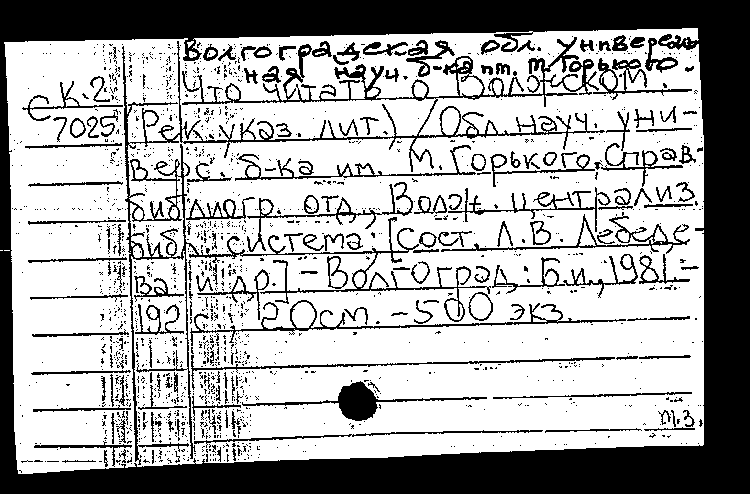 Волгоградская обл. универсаль
ная науч. б-ка им. М. Горького.
К.2 Что читать о Волжском.
С 7025 (Рек. указ. лит.) / Обл. науч. уни-
верс. б-ка им. М. Горького. Справ.-
библиогр. отд., Волж. централиз.
библ. система; [Сост. Л.В. Лебеде-
ва и др.] - Волгоград, : Б.и., 1981, -
192 с., 20см. - 500 экз.
т.з.